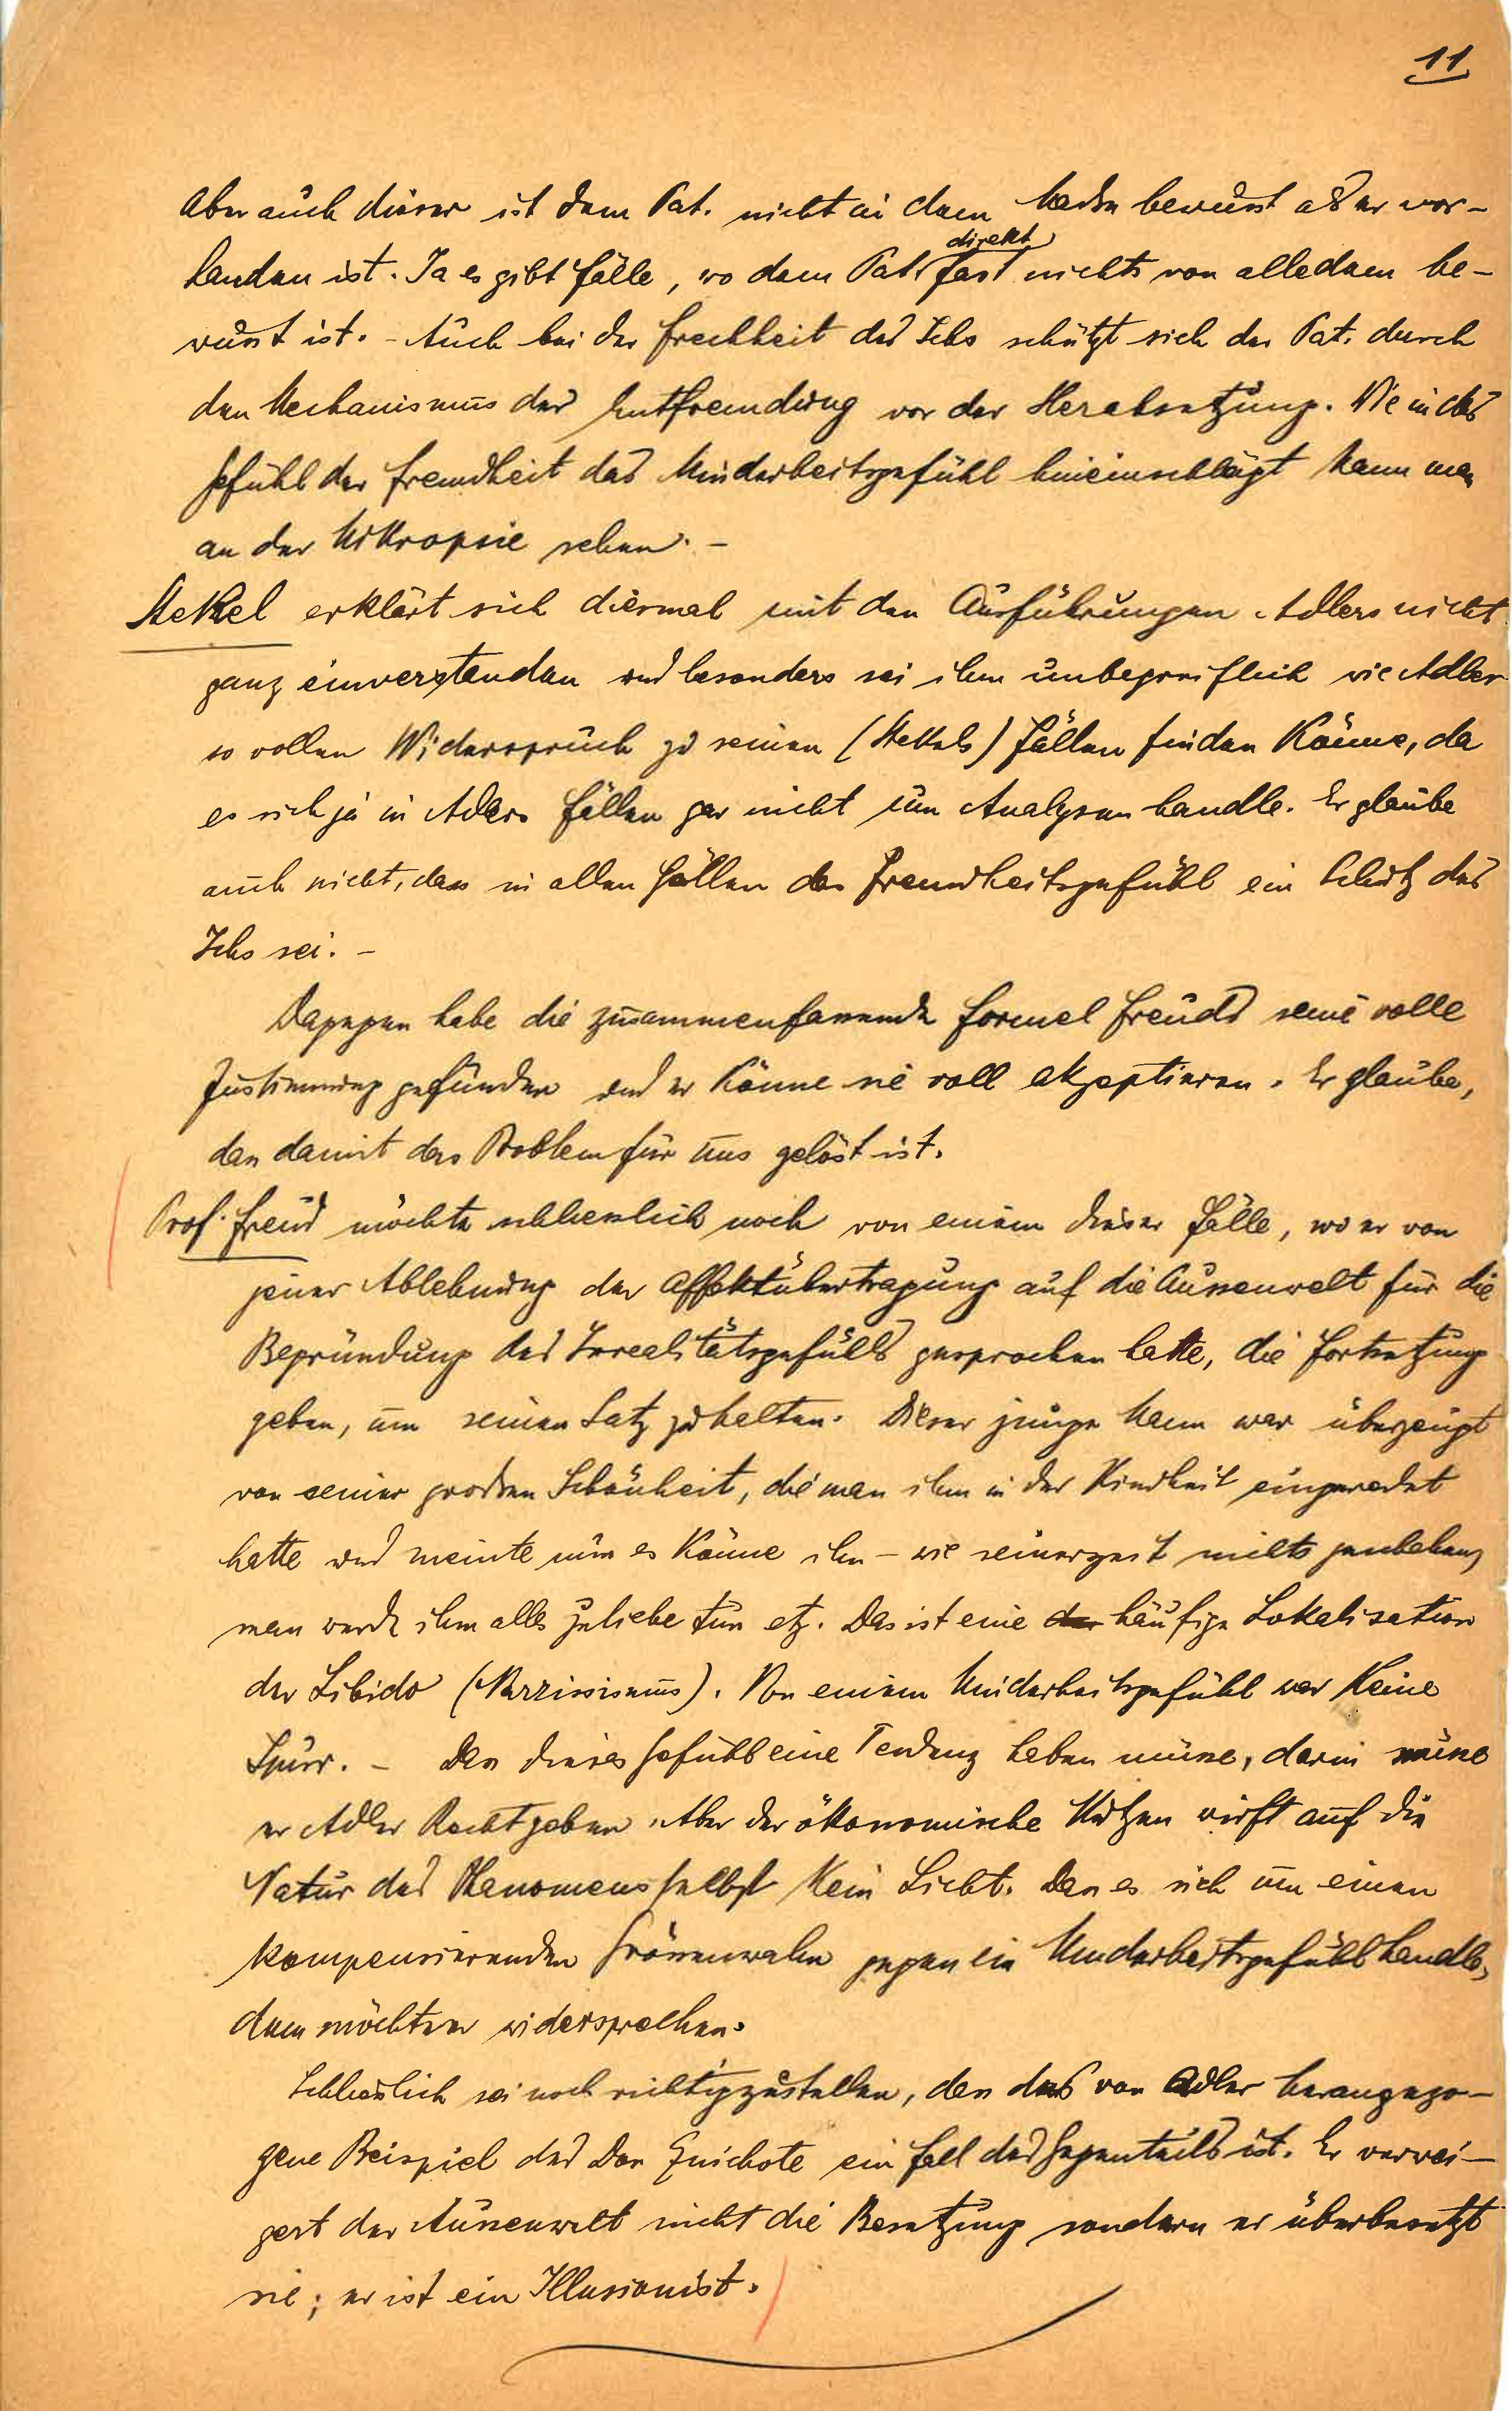 11
aber auch dieser ist dem Pat. nicht in dem Maße bewusst als er vor-
direkt
handen ist. Ja es gibt Fälle, wo dem Pat. fast nichts von alledem be-
wusst ist. - Auch bei der Frechheit des Ichs schützt sich der Pat. durch
den Mechanismus der Entfremdung vor der Herabsetzung. Wie in das
Gefühl der Fremdheit das Minderheitsgefühl hineinschlägt kann man
an der Mikropsie sehen. -
Stekel erklärt sich diesmal mit den Ausführungen Adlers nicht
ganz einverstanden und besonders sei ihm unbegreiflich wie Adler
so vollen Widerspruch zu seinen (Stekels) Fällen finden könne, da
es sich ja in Adlers Fällen gar nicht um Analysen handle. Er glaube
auch nicht, dass in allen Fällen das Fremdheitsgefühl ein Schutz des
Ichs sei. -
Dagegen habe die zusammenfassende Formel Freuds seine volle
Zustimmung gefunden und er könne sie voll akzeptieren. Er glaube,
dass damit das Problem für uns gelöst ist.
Prof. Freud möchte schliesslich noch von einem dieser Fälle, wo er von
jener Ablehnung der Affektübertragung auf die Aussenwelt für die
Begründung des Irrealitätsgefühls gesprochen hatte, die Fortsetzung
geben, um seinen Satz zu halten. Dieser junge Mann war überzeugt
von seiner großen Schönheit, die man ihm in der Kindheit eingeredet
hatte und meinte nun es könne ihm - wie seinerzeit nichts geschehen,
man werde ihm alles zuliebe tun etz. Das ist eine häufige Lokalisation
der Libido (Narzissismus). Von einem Minderheitsgefühl war keine
Spur. - Dass dieses Gefühl eine Tendenz haben müsse, darin müsse
er Adler Recht geben. Aber der ökonomische Nutzen wirft auf die
Natur des Phänomens selbst kein Licht. Dass es sich um einen
kompensierenden Grössenwahn gegen ein Minderheitsgefühl handle,
dem möchte er widersprechen.
Schließlich sei noch richtigzustellen, dass das von Adler herangezo-
gene Beispiel des Don Quichote ein Fall des Gegenteils ist. Er verwei-
gert der Aussenwelt nicht die Besetzung sondern er überbesetzt
sie; er ist ein Illusionist.